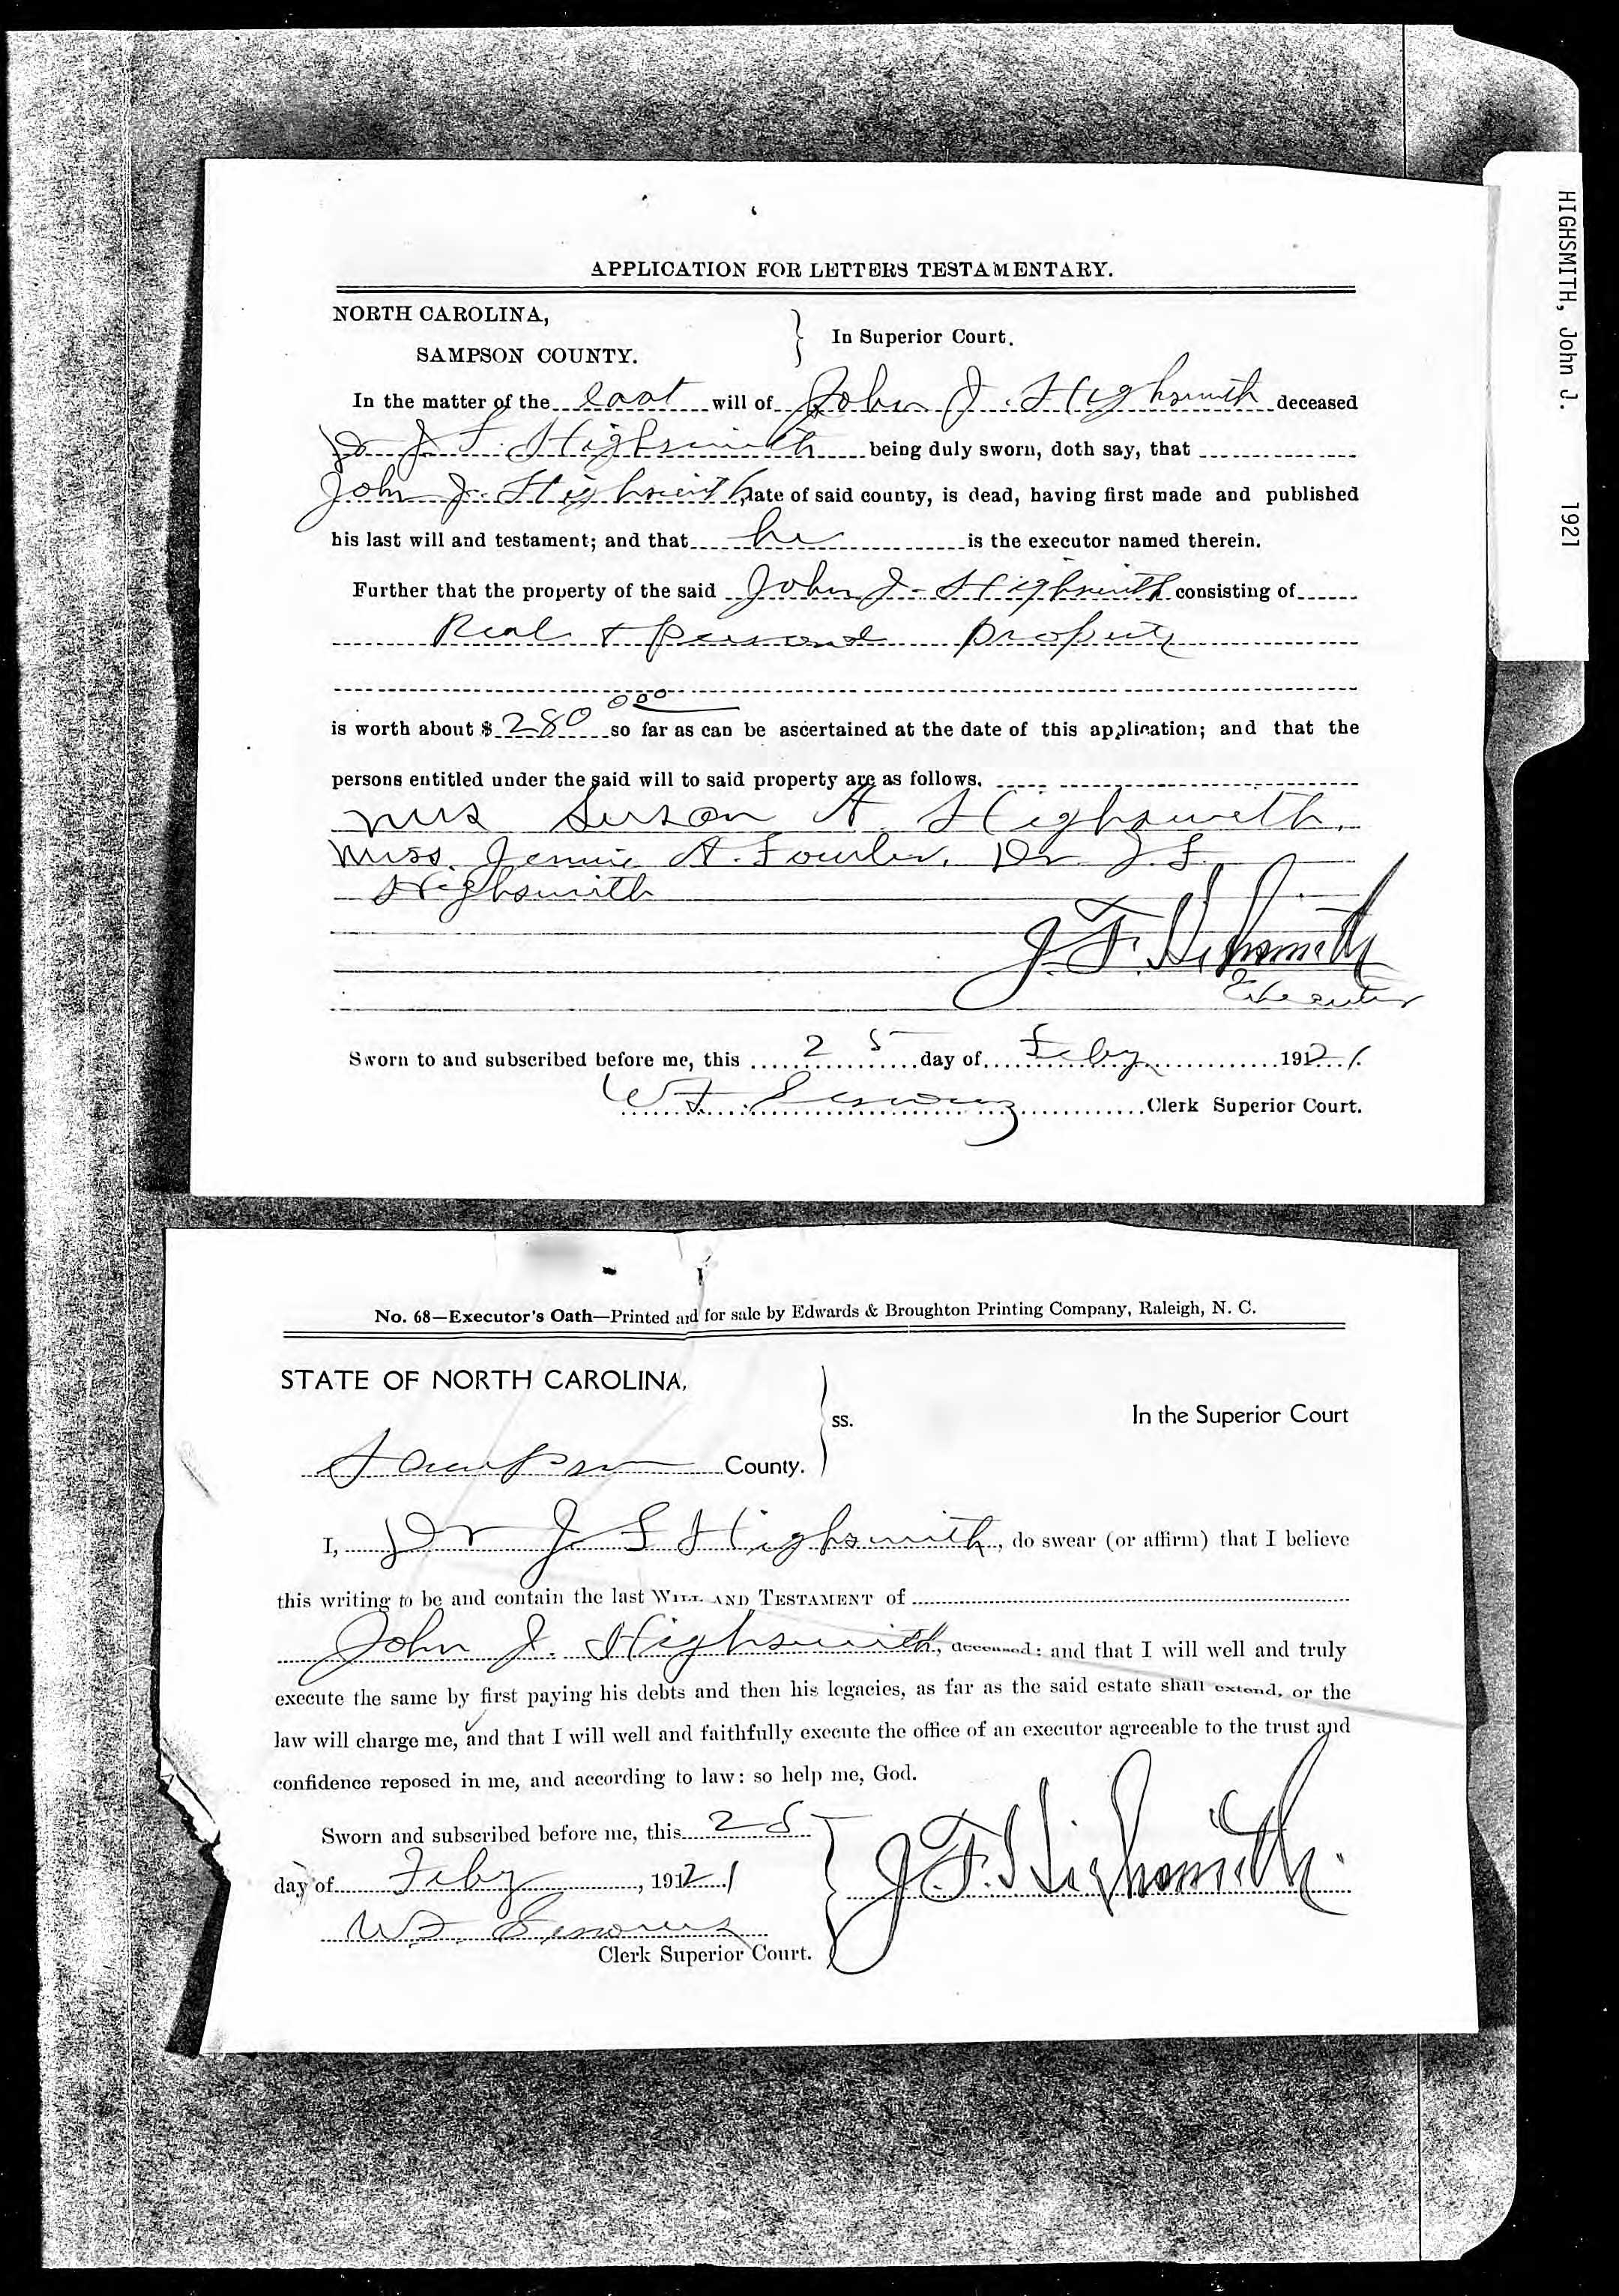 HIGHSMITH, John J. 1921
APPLICATION FOR LETTERS TESTAMENTARY.
NORTH CAROLINA,
SAMPSON COUNTY.
In Superior Court.
In the matter of the last will of John J. Highsmith deceased
Dr J. F. Highsmith being duly sworn, doth say, that
John J. Highsmith, late of said county, is dead, having first made and published
his last will and testament; and that he is the executor named therein.
Further that the property of the said John J. Highsmith consisting of
Real + personal property
is worth about $ 280 000 so far as can be ascertained at the date of this application; and that the
persons entitled under the said will to said property are as follows.
Mrs Susan A. Highsmith,
Miss Jennie A. Fowler, Dr J. F.
Highsmith
J. F. Highsmith
Executor
Sworn to and subscribed before me, this 25 day of Feby 1921.
W F Clerk Superior Court.
No. 68—Executor's Oath—Printed and for sale by Edwards & Broughton Printing Company, Raleigh, N. C.
STATE OF NORTH CAROLINA,
ss.
In the Superior Court
Sampson County.
I, Dr J F Highsmith, do swear (or affirm) that I believe
this writing to be and contain the last WILL AND TESTAMENT of
John J. Highsmith, deceased: and that I will well and truly
execute the same by first paying his debts and then his legacies, as far as the said estate shall extend, or the
law will charge me, and that I will well and faithfully execute the office of an executor agreeable to the trust and
confidence reposed in me, and according to law: so help me, God.
Sworn and subscribed before me, this 25
day of Feby, 1921
J. F. Highsmith.
W F.
Clerk Superior Court.